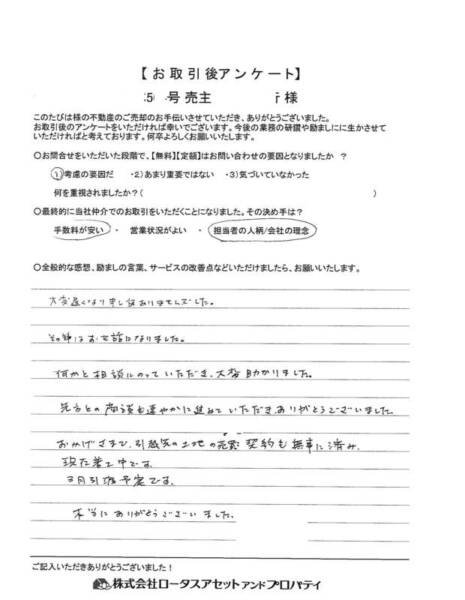 【お取引後アンケート】
号売主 様
このたびは様の不動産のご売却のお手伝いさせていただき、ありがとうございました。
お取引後のアンケートをいただければ幸いでございます。今後の業務の研鑽や励ましにに生かさせて
いただければと考えております。何卒よろしくお願いします。
○お問合せをいただいた段階で、【無料】【定額】はお問い合わせの要因となりましたか ?
1)考慮の要因だ ・2)あまり重要ではない ・3)気づいていなかった
何を重視されましたか?( )
○最終的に当社仲介でのお取引をいただくことになりました。その決め手は?
手数料が安い ・ 営業状況がよい ・ 担当者の人柄/会社の理念
○全般的な感想、励ましの言葉、サービスの改善点などいただけましたら、お願いいたします。
大変遅くなり申し訳ありませんでした。
その節はお世話になりました。
何かと相談にのっていただき、大変助かりました。
先方との商談も速やかに進めていただき、ありがとうございました
おかげさまで、引越先の土地の売買契約も無事に済み、
現在着工中です。
3月引越予定です。
本当にありがとうございました。
ご記入いただきありがとうございました!
株式会社ロータスアセットアンドプロパティ